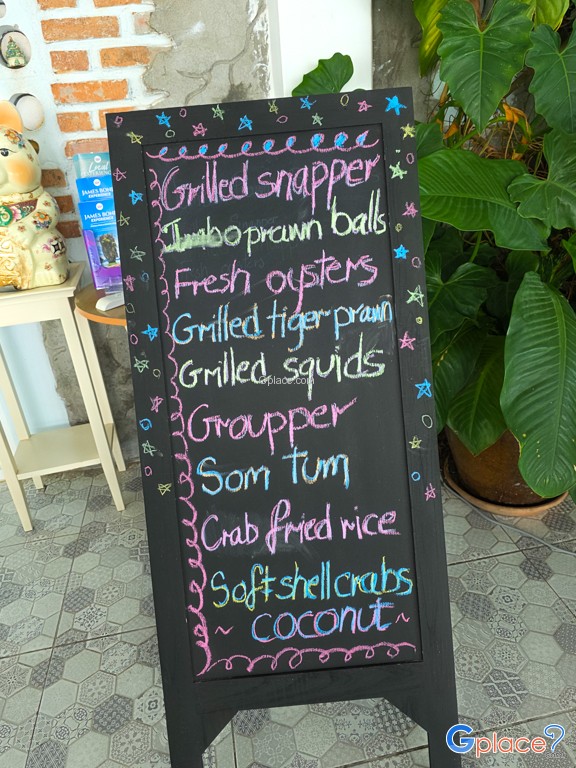 Grilled snapper
Jmbo prawn balls
Fresh oysters
Grilled tiger prawn
Grilled squids
Gplace.com
Groupper
Som Tum
Crab fried rice
Soft shell crabs
~ coconut ~
JAMES BOND
JAMES BON
Gplace